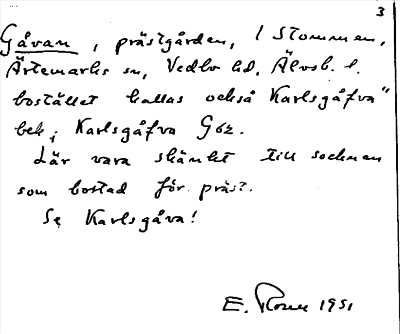 3
Gåvan, prästgården, 1 Stommen,
Ärtemarks sn, Vedbo hd, Älvsb. l.
bostället kallas också Karlsgåfva"
bek; Karlsgåfva G62.
Lär vara skänkt till socknen
som bostad för präst.
Se Karlsgåva!
E. 1951